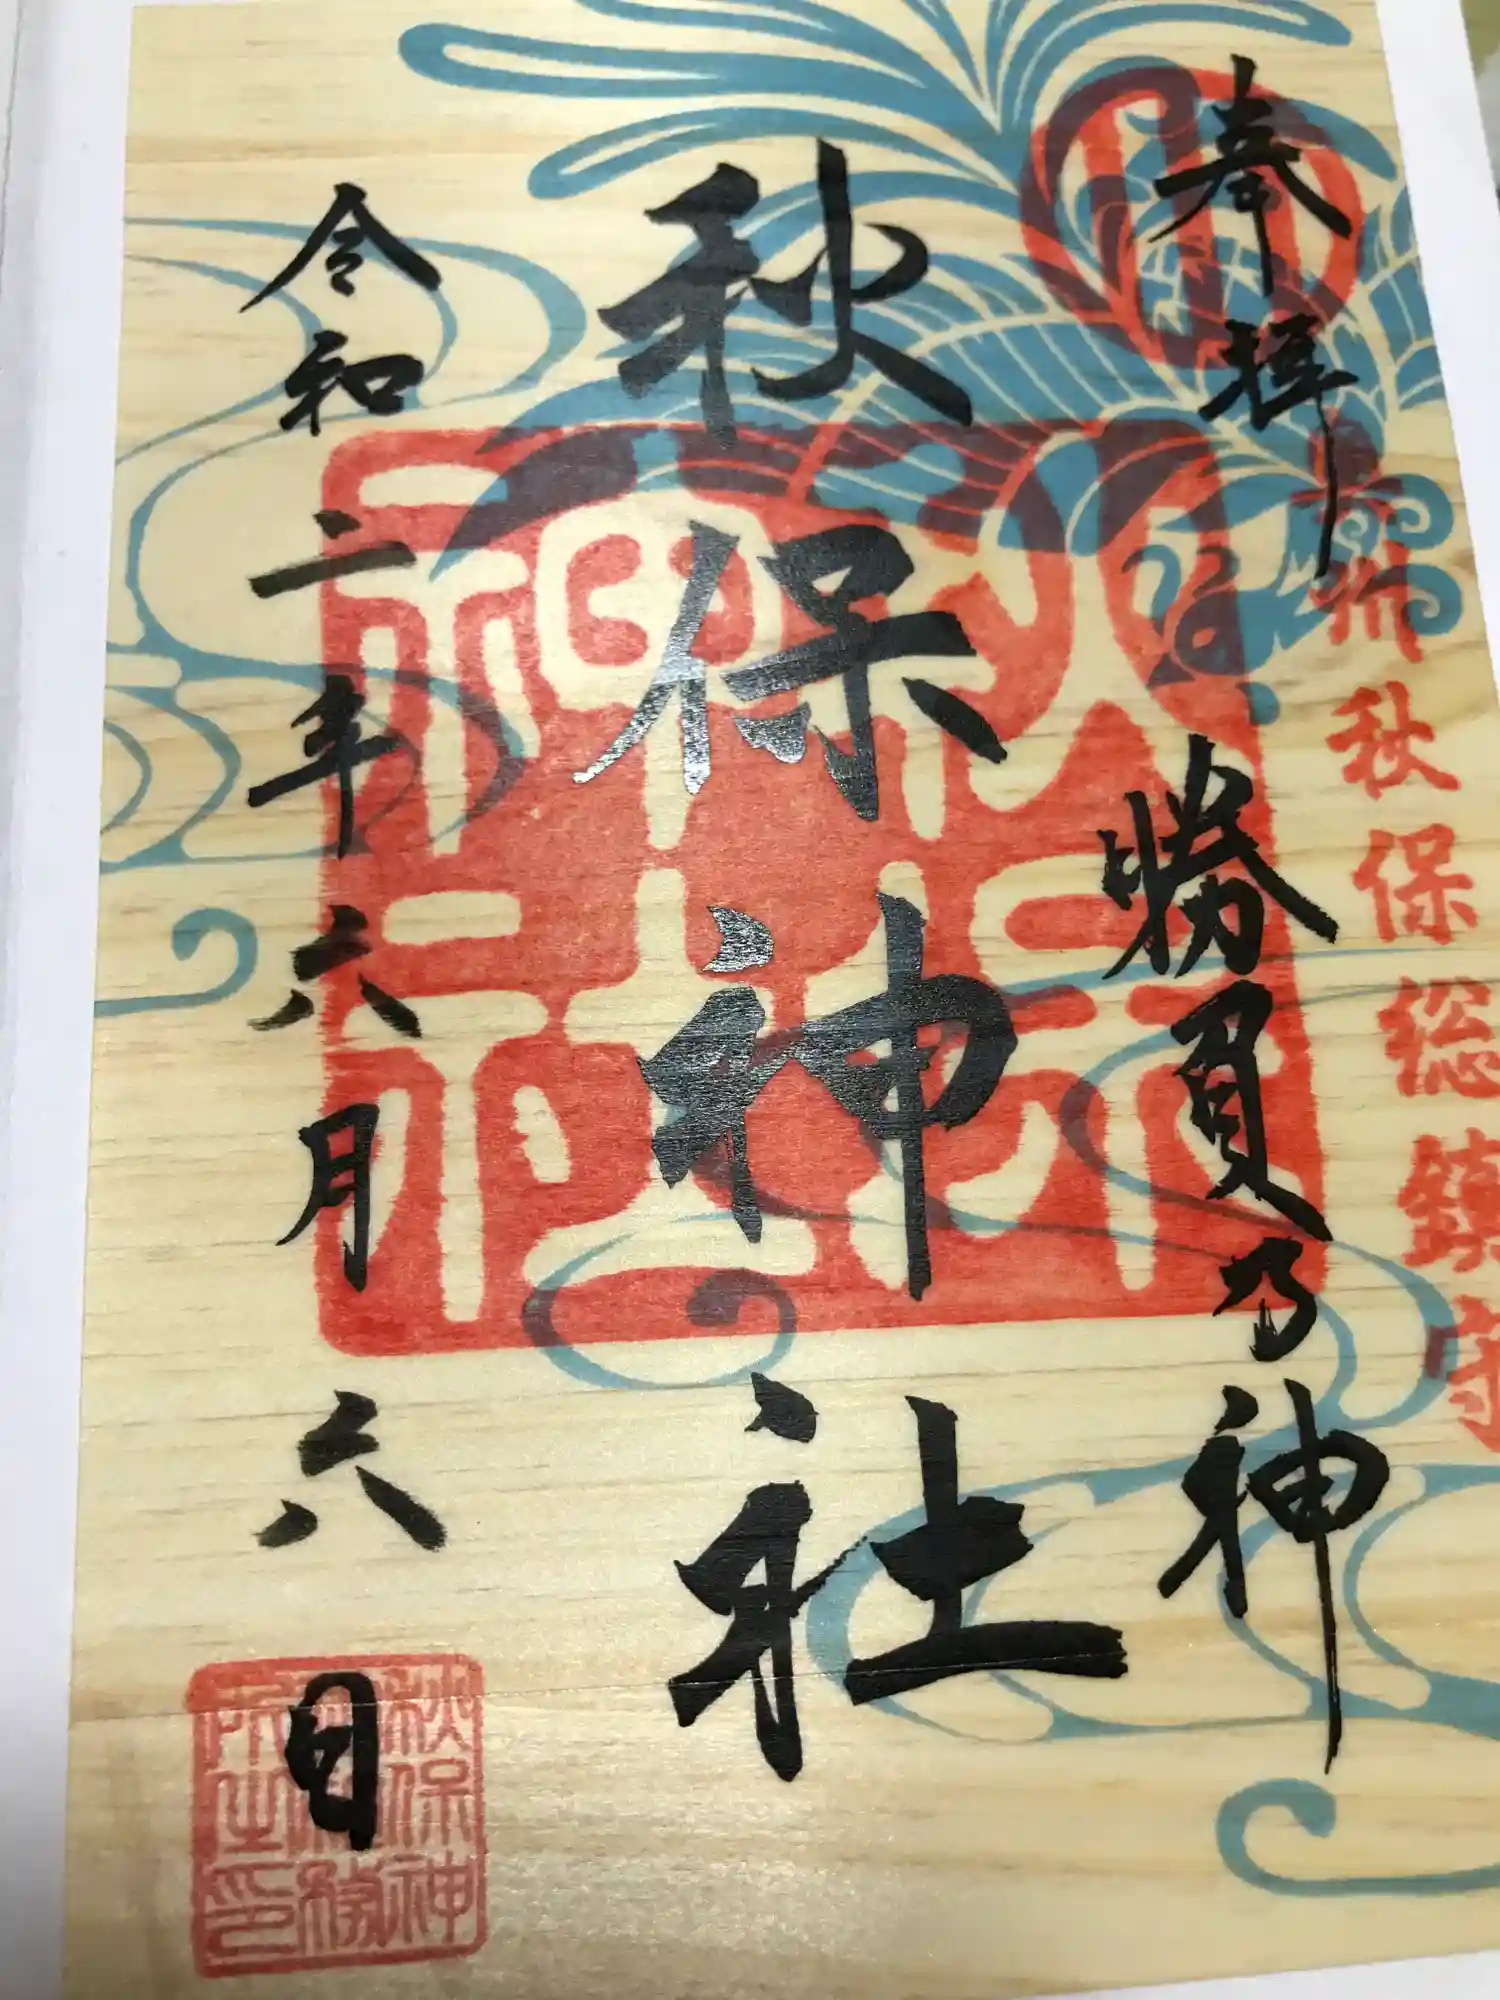 奉拝
奥州秋保総鎮守
勝負乃神
秋保神社
秋保神社
令和二年六月六日
秋保神
社務
所之印